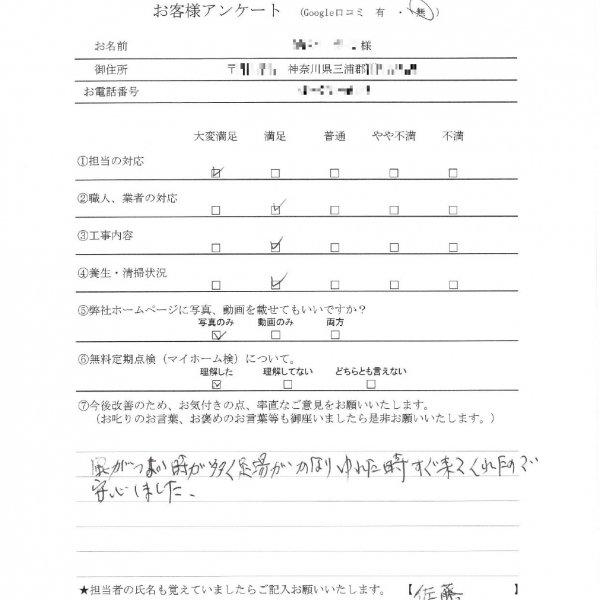 お客様アンケート （Google口コミ 有 ・ 無）
お名前 様
御住所 〒 神奈川県三浦郡
お電話番号
大変満足 満足 普通 やや不満 不満
①担当の対応 ☑ □ □ □ □
②職人、業者の対応 □ ☑ □ □ □
③工事内容 □ ☑ □ □ □
④養生・清掃状況 □ ☑ □ □ □
⑤弊社ホームページに写真、動画を載せてもいいですか？
写真のみ 動画のみ 両方
☑ □ □
⑥無料定期点検（マイホーム検）について。
理解した 理解してない どちらとも言えない
☑ □ □
⑦今後改善のため、お気付きの点、率直なご意見をお願いいたします。
（お叱りのお言葉、お褒めのお言葉等も御座いましたら是非お願いいたします。）
風がつよい時が多く足場がかなりゆれた時すぐ来てくれたので
安心しました。
★担当者の氏名も覚えていましたらご記入お願いいたします。 【 佐藤 】